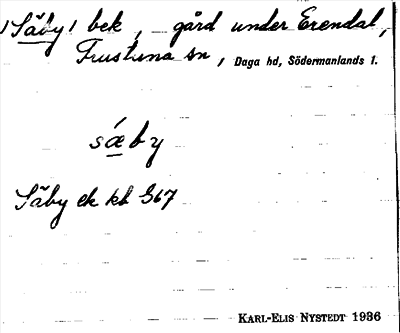 /Säby/ bek, gård under Erendal,
Frustuna sn, Daga hd, Södermanlands l.
sǽby
Säby ek kb 367
KARL-ELIS NYSTEDT 1936